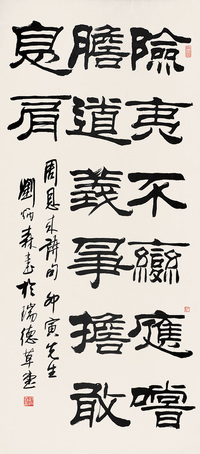 險夷不變應嚐
膽道義爭擔敢
息肩
周恩来詩句 卯寅先生
劉炳森書於瑞德草堂